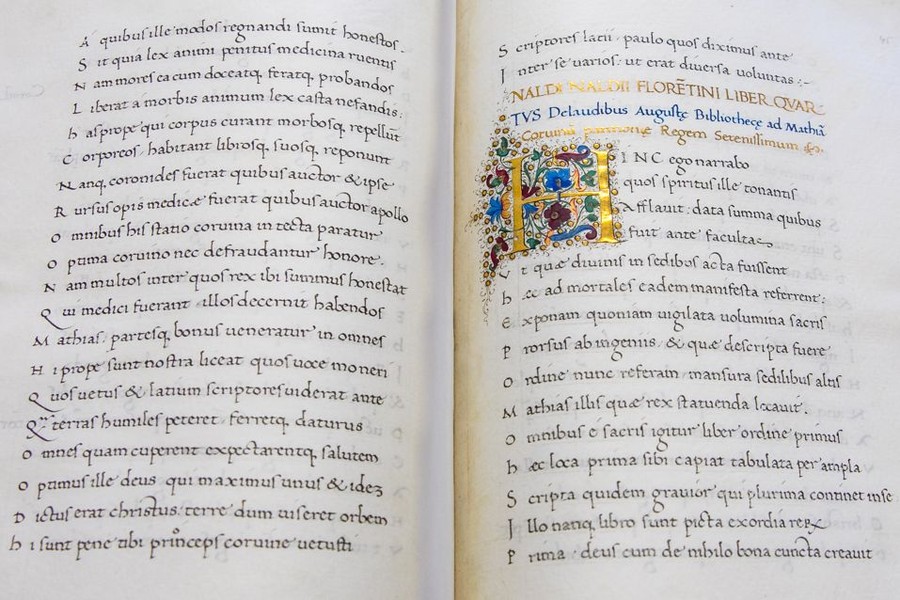 A quibus ille modos regnandi sumit honestos.
S it quia lex animi penitus medicina ruentis
N am mores ea cum doceatq. feratq. probandos
L iberat a morbis animum lex casta nefandis:
h as prope qui corpus curant morbosq. repellunt
C orporeos. habitant librosq. suosq. reponunt
N anq. coronides fuerat quibus auctor & ipse
R ursus opis medicæ fuerat quibus auctor apollo
O mnibus his statio coruina in tecta paratur
O ptima coruino nec defraudantur honore.
N am multos inter quos rex ibi summus honestat
Q ui medici fuerant illos decernit habendos
M athias. partesq. bonus ueneratur in omnes
H i prope sunt nostra liceat quos uoce moneri
Q uos uetus & latium scriptores uiderat ante
Q terras humiles peteret. ferretq. daturus
O mnes quam cuperent expectarentq. salutem
O ptimus ille deus qui maximus unus & idez
D ictus erat christus. terre dum uiseret orbem
h i sunt pene tibi princeps coruine uetusti
S criptores latii. paulo quos diximus ante
I nter se uarios: ut erat diuersa uoluntas:
NALDI NALDII FLORĒTINI LIBER QVAR
TVS De laudibus Augustę Bibliothecę ad Mathiā
Coruinū pannonię Regem Serenissimum
HINC ego narrabo
quos spiritus ille tonantis
Afflauit: data summa quibus
fuit ante facultas
V t quæ diuinis in sedibus acta fuissent
h ec ad mortales eadem manifesta referrent:
E xponam quoniam uigilata uolumina sacris
P rorsus ab ingeniis. & quæ descripta fuere
O rdine nunc referam mansura sedilibus altis
M athias illis quæ rex statuenda locauit.
O mnibus e sacris igitur liber ordine primus
h æc loca prima sibi capiat tabulata per ampla
S cripta quidem grauior qui plurima continet in se
I llo nanq. libro sunt picta exordia reꝝ
P rima. deus cum de nihilo bona cuncta creauit